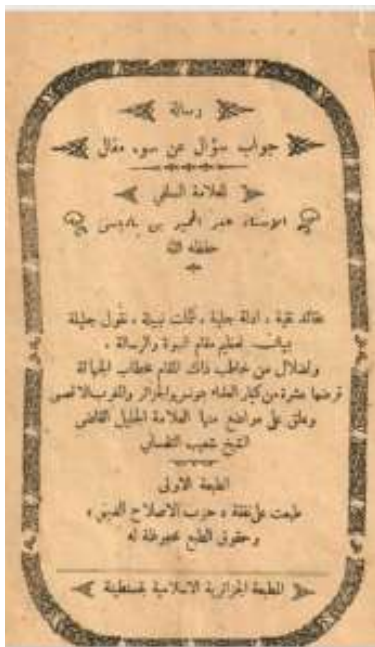 رسالة
جواب سؤال عن سوء مقال
للعلامة السلفي
الاستاذ عبد الحميد بن باديس
حفظه الله
عقائد نقية ، ادلة جلية ، نبيلة ، نقول جليلة
بيانات لعظيم مقام النبوة والرسالة ،
وضلال من خاطب ذاك المقام بخطاب الجهالة
قرضها عشرة من كبار العلماء بتونس والجزائر والمغرب الاقصى
وعلق على مواضع منها العلامة الجليل القاضي
الشيخ شعيب التلمساني
الطبعة الاولى
طبعت على نفقة « حزب الاصلاح الديني »
وحقوق الطبع محفوظة له
المطبعة الجزائرية الاسلامية بقسنطينة